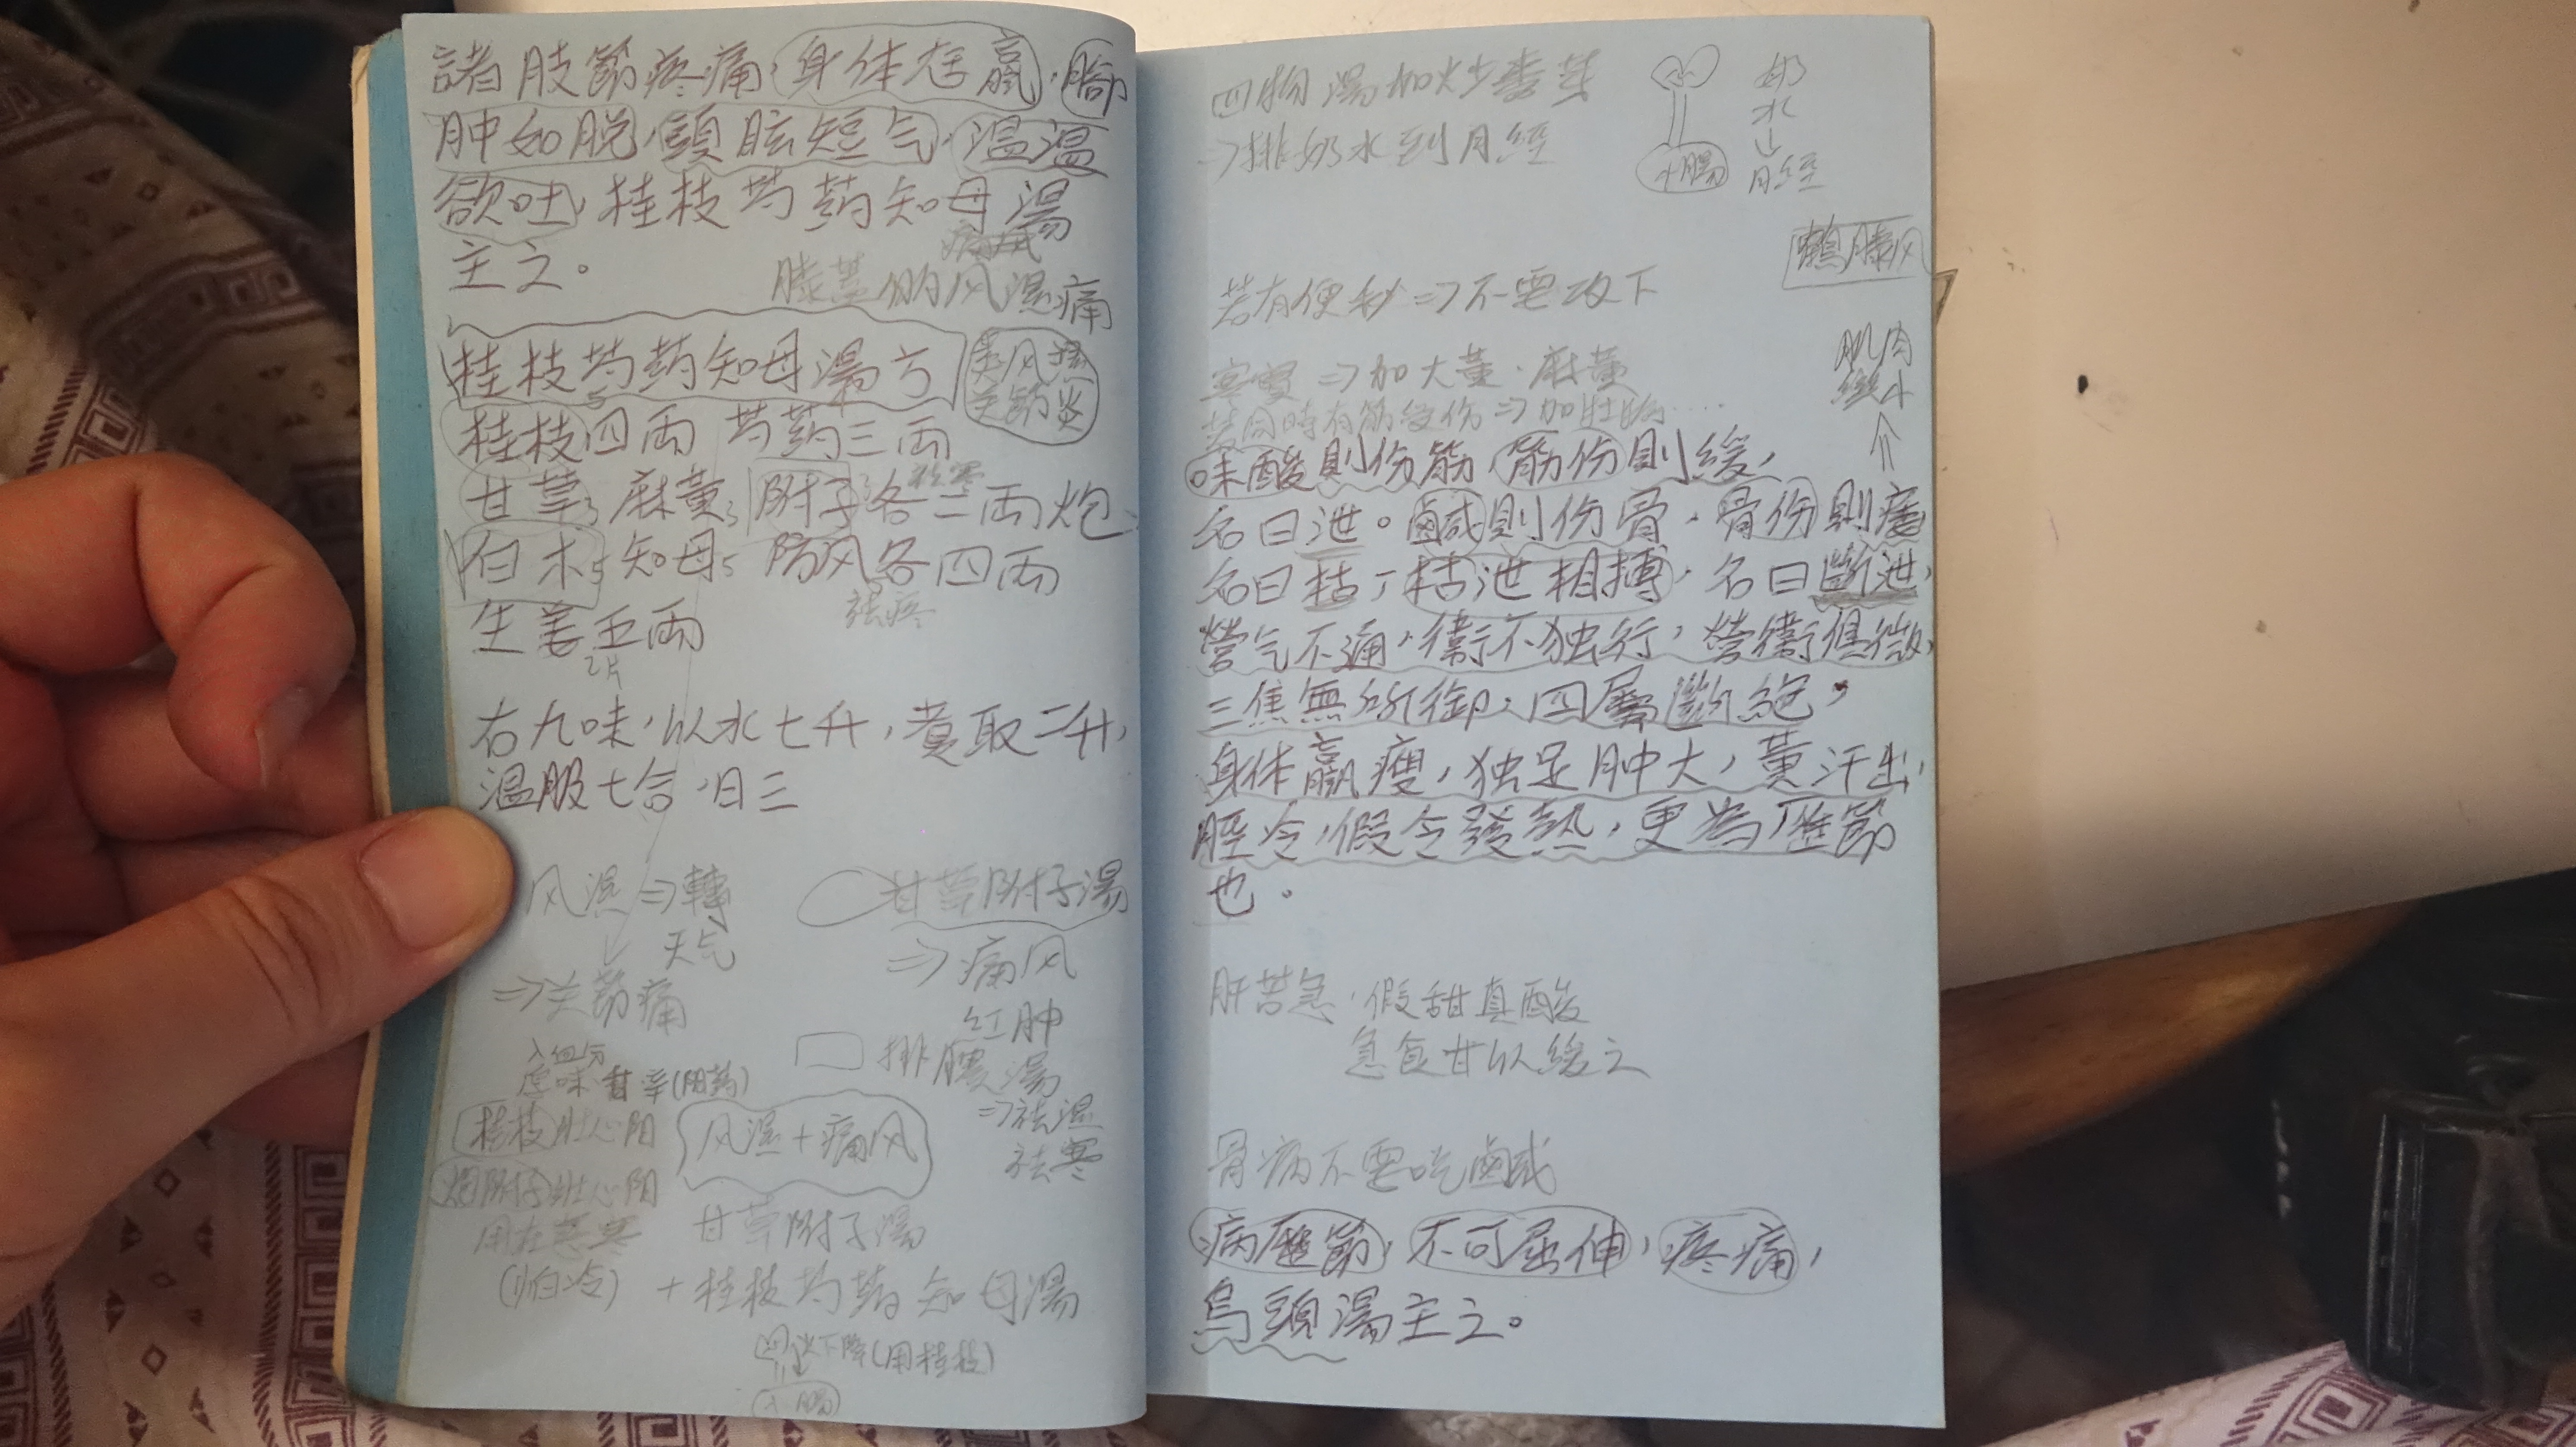 諸肢節疼痛,身体尪羸,腳
肿如脱,頭眩短气,温温
欲吐,桂枝芍药知母湯
主之。
痛风
膝蓋 风濕痛
桂枝芍药知母湯方
类风濕
关節炎
桂枝四兩 芍药三兩
5
甘草3 麻黃3 附子3各二兩炮
祛寒
白朮5 知母5 防风各四兩
5
祛疼
生姜五兩
2片
右九味,以水七升,煮取二升,
温服七合,日三
风濕⇒轉
天气
⇒关節痛
甘草附子湯
⇒痛风
红肿
排膿湯
⇒祛濕
祛寒
入血分
味甘辛(阳药)
桂枝壯心阳
炮附子壯心阳
用在裏寒
(怕冷)
风濕+痛风
甘草附子湯
+桂枝芍药知母湯
火下降(用桂枝)
小腸
四物湯加炒麥芽
⇒排奶水到月經
小腸
奶
水
↓
月經
鶴膝风
若有便秘⇒不要攻下
寒實⇒加大黃.麻黃
若同時有筋受伤⇒加牡蛎....
肌肉
縮小
⇑
味酸則伤筋,筋伤則緩,
名曰泄。鹹則伤骨,骨伤則痿
名曰枯,枯泄相搏,名曰斷泄,
營气不通,衛不独行,營衛俱微,
三焦無所御,四屬斷絕,
身体羸瘦,独足肿大,黃汗出,
脛冷,假令發熱,更為歷節
也。
肝苦急,假甜真酸
急食甘以緩之
骨病不要吃鹹
病歷節,不可屈伸,疼痛,
烏頭湯主之。